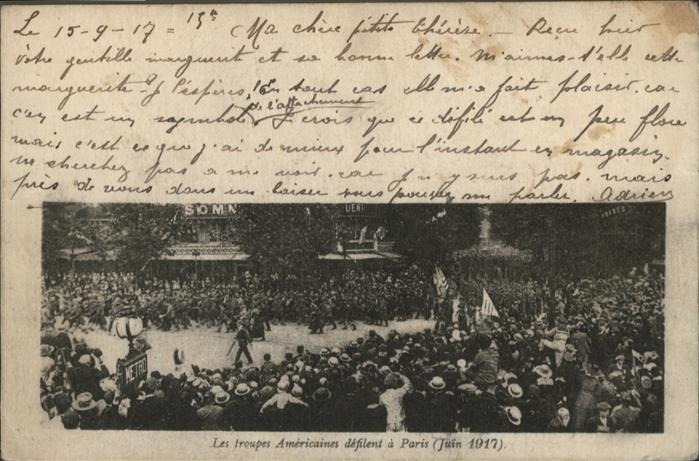 Le 15-9-17 = 13h Ma chère p'tite thérèse - Reçu hier
votre gentille marguerite et sa bonne lettre. M'aimes-t'elle cette
marguerite - ? J'l'espère, ! En tout cas elle m'a fait plaisir, car
de l'attachement
c'en est un symbole, Je crois que ce défilé est un peu flou
mais c'est ce que j'ai de mieux pour l'instant en magasin.
ne cherchez pas a me voir, car j'n'y suis pas. mais
près de vous dans un baiser vous pouvez me parler. Adrien
SOMM
METRO
Les troupes Américaines défilent à Paris (Juin 1917).